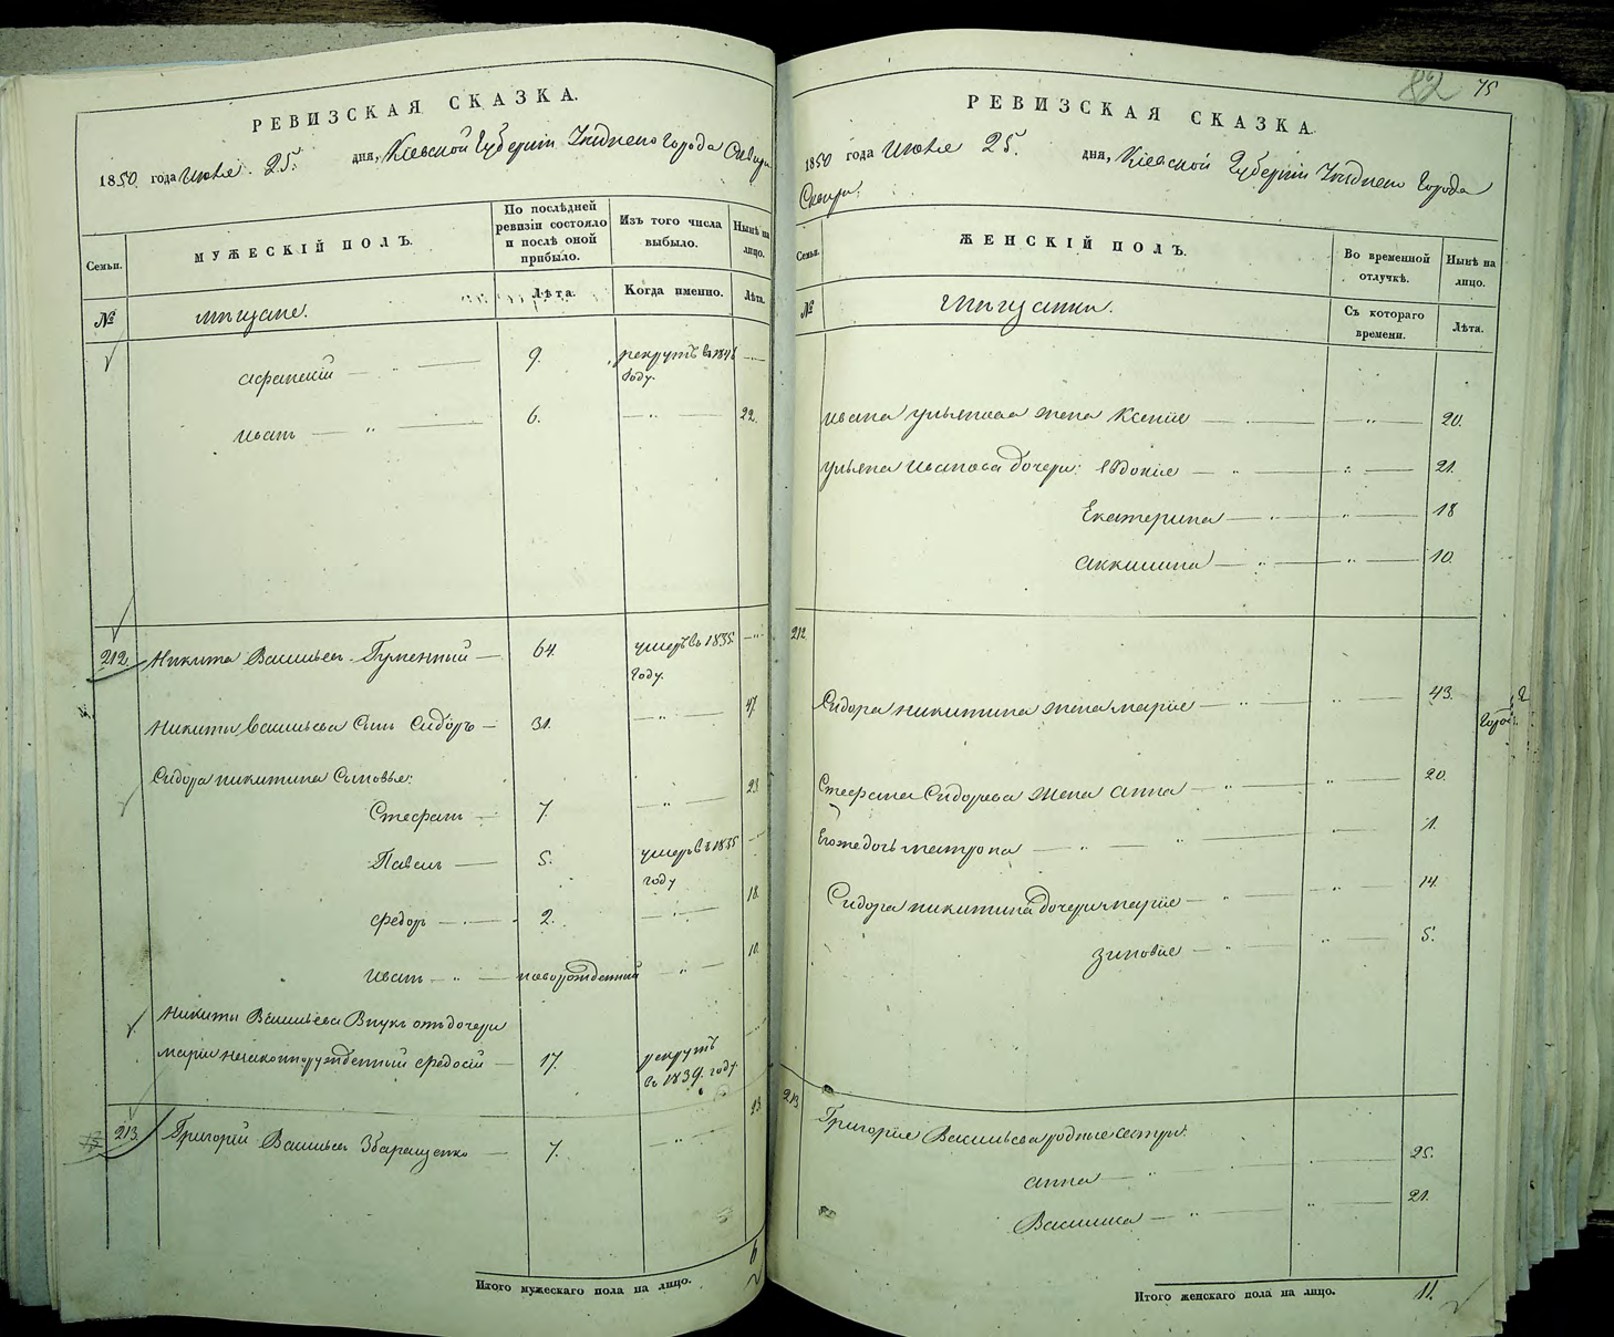 РЕВИЗСКАЯ СКАЗКА.
1850 года Июля 25. дня, Кіевской Губерніи Уѣзднаго Города Сквиры
Семьи.
МУЖЕСКІЙ ПОЛЪ.
По послѣдней ревизіи состояло и послѣ оной прибыло.
Изъ того числа выбыло.
Нынѣ на лицо.
№
мѣщане.
Лѣта.
Когда именно.
Лѣта.
Афанасій — „ — 9. рекрутъ въ 1846 году. — „ —
Иванъ — „ — 6. — „ — 22.
212. Никита Васильевъ Гуменный — 64. умеръ въ 1835 году. — „ —
Никиты Васильева Сынъ Сидоръ — 31. — „ — 47.
Сидора Никитина Сыновья:
Стефанъ — 7. — „ — 23.
Павелъ — 5. умеръ въ 1835 году — „ —
Федоръ — 2. — „ — 18.
Иванъ — „ — новорожденный — „ — 10.
Никиты Васильева Внукъ отъ дочери
Маріи незаконноружденный Федосій — 17. рекрутъ въ 1839. году. — „ —
213. Григорій Васильевъ Збаращенко — 7. — „ — 23.
6
Итого мужескаго пола на лицо.
82 75
РЕВИЗСКАЯ СКАЗКА.
1850 года Июля 25. дня, Кіевской Губерніи Уѣзднаго Города
Сквиры.
Семьи.
ЖЕНСКІЙ ПОЛЪ.
Во временной отлучкѣ.
Нынѣ на лицо.
№
Мѣщанки.
Съ котораго времени.
Лѣта.
Ивана Ульянова жена Ксенія — — „ — 20.
Ульяна Иванова дочери: Евдокія — „ — 21.
Екатерина — „ — „ — 18
Аккилина — „ — „ — 10.
212.
Сидора Никитина жена Марія — „ — „ — 43.
Стефана Сидорова жена Анна — „ — „ — 20.
Его же дочь Матрона — „ — „ — 1.
Сидора Никитина дочери Марія — „ — „ — 14.
Зиновія — „ — „ — 5.
213.
Григорія Васильева родные сестры:
Анна — „ — 25.
Василиса — „ — „ — 21.
Итого женскаго пола на лицо. 11.